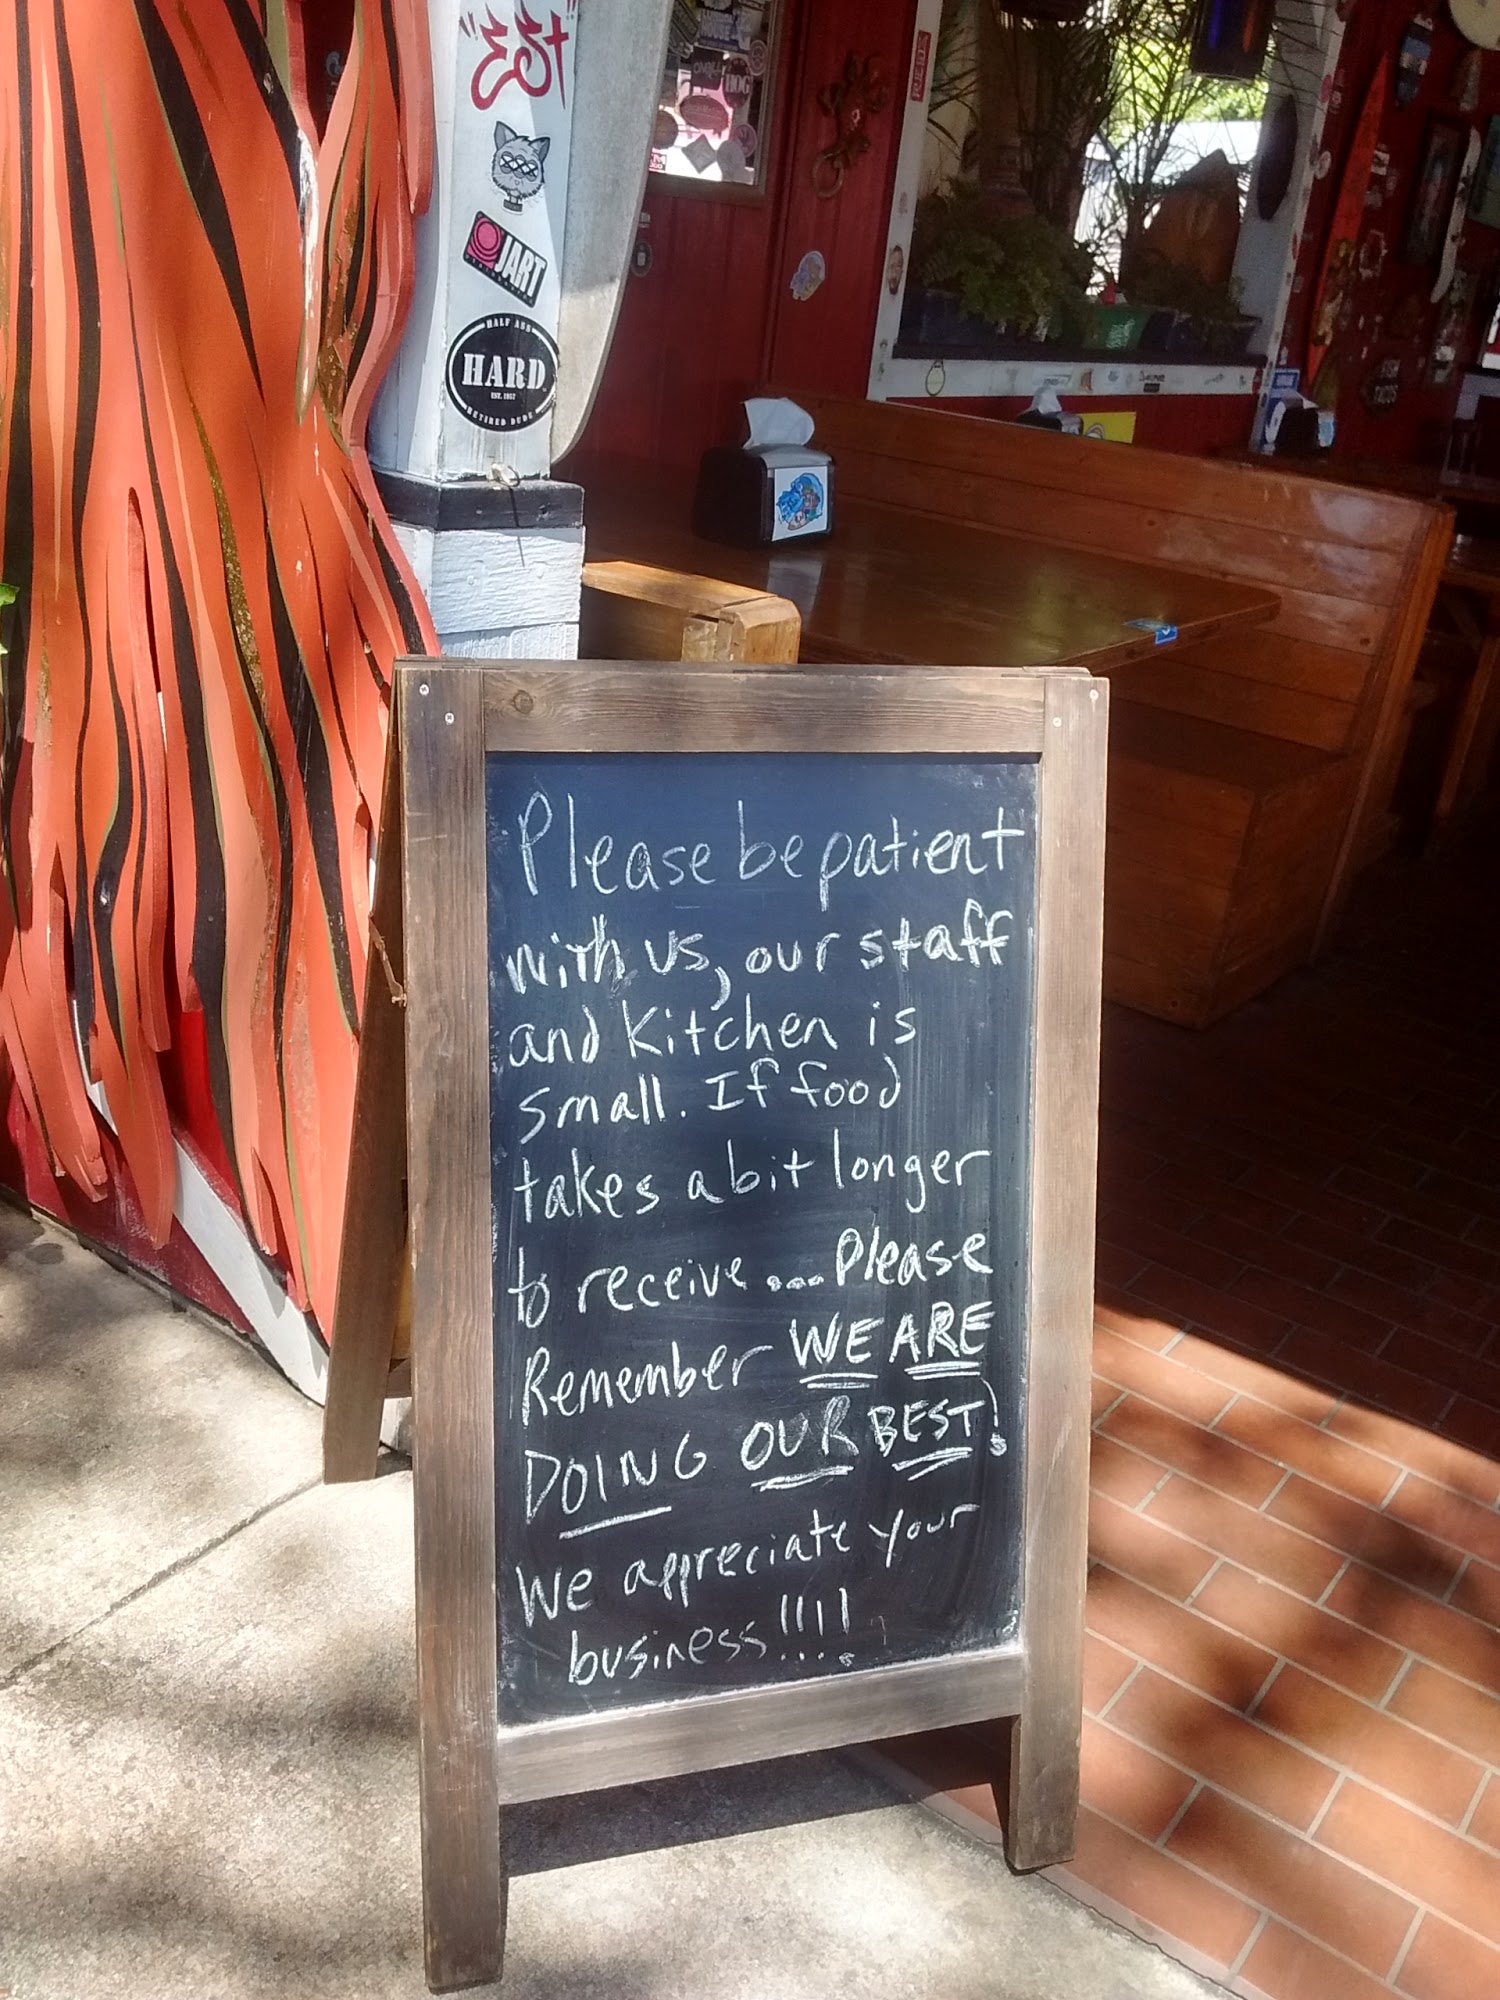 "EST"
JART
HALF ASS
HARD
EST. 1957
RETIRED DUDE
HOG
FISH
TACOS
Please be patient
with us, our staff
and Kitchen is
small. If food
takes a bit longer
to receive ... Please
Remember WE ARE
DOING OUR BEST!
We appreciate your
business!!!!